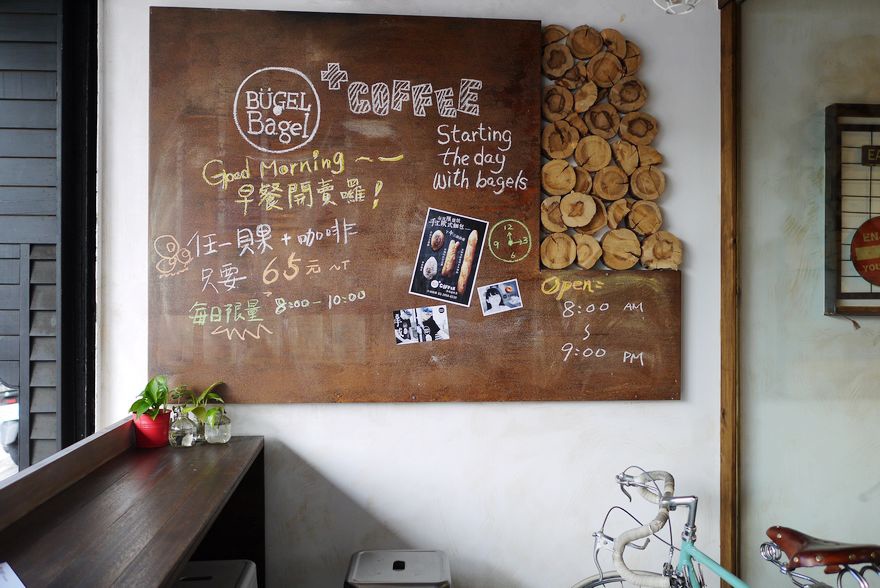 BÜGEL
Bagel
+ COFFEE
Starting
the day
with bagels
Good Morning ~~
早餐開賣囉!
任一貝果+咖啡
只要 65元 ~T
每日限量 8:00-10:00
12
9 3
6
COFFEE
Open=
8:00 AM
~
9:00 PM